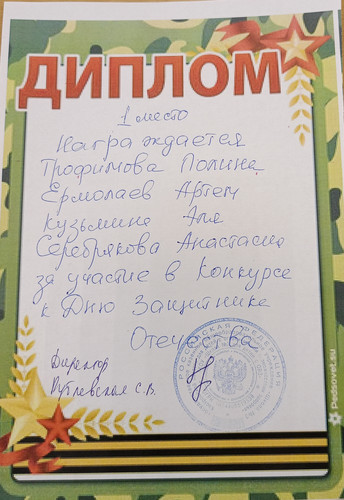 ДИПЛОМ
1 место
Награждается
Трофимова Полина
Ермолаев Артем
Кузьмина Аля
Серебрякова Анастасия
за участие в Конкурсе
к Дню Защитника
Отечества
Директор
С.В.
РОССИЙСКАЯ ФЕДЕРАЦИЯ
Pedsovet.su